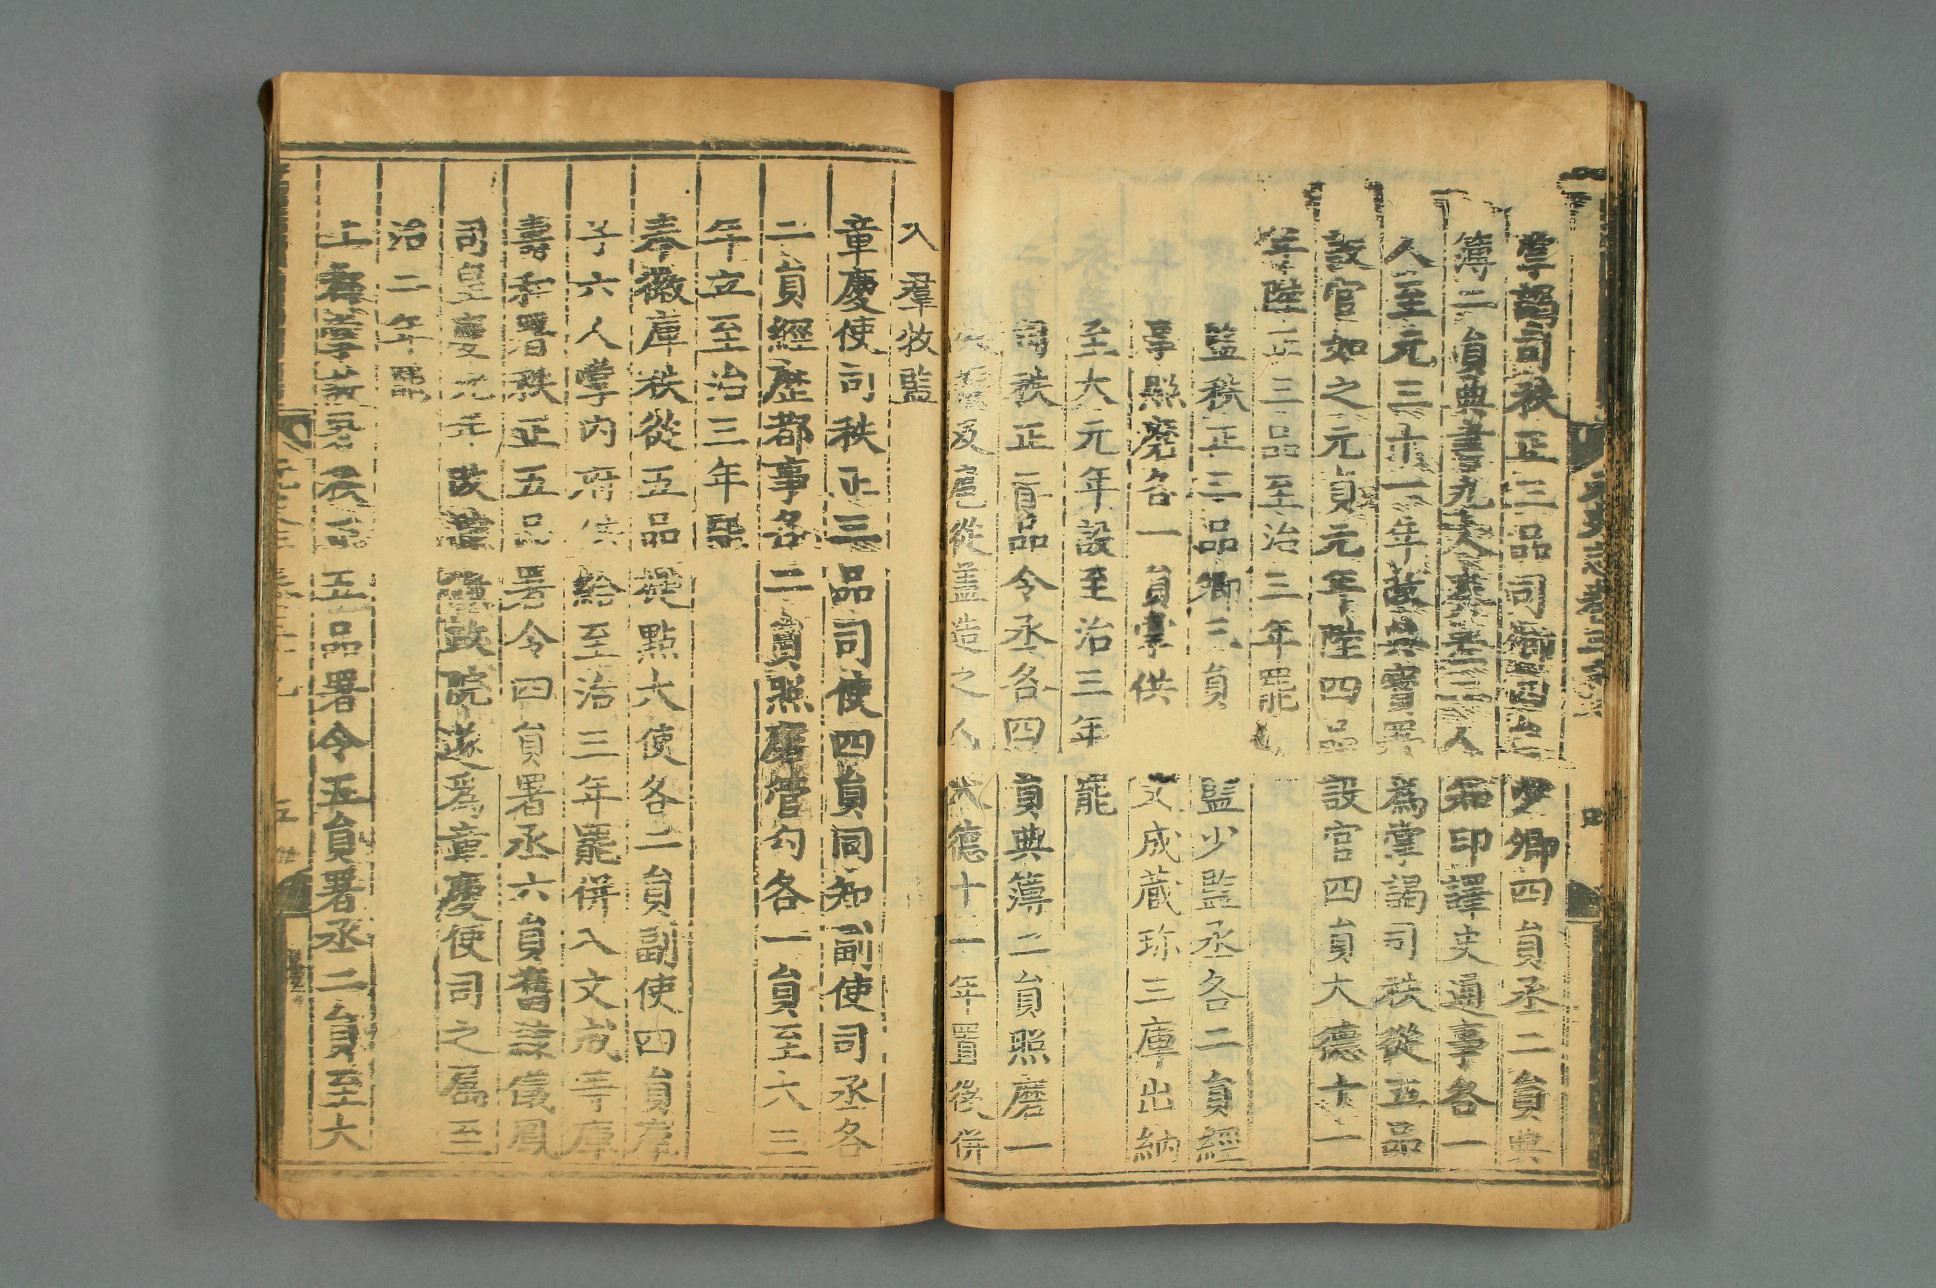 元史志卷三十九
四
掌謁司秩正三品司卿四員少卿四員丞二員典
簿二員典書九人奏差二人知印譯史通事各一
人至元三十一年改典寶署為掌謁司秩從五品
設官如之元貞元年陞四品設官四員大德十一
年陞正三品至治三年罷
監秩正三品卿三員監少監丞各二員經
事照磨各一員掌供文成藏珍三庫出納
至大元年設至治三年罷
秩正三品令丞各四員典簿二員照磨一
扈從蓋造之人大德十一年置後併
入羣牧監
章慶使司秩正三品司使四員同知副使司丞各
二員經歷都事各二員照磨管勾各一員至大三
年立至治三年罷
奉徽庫秩從五品提點大使各二員副使四員庫
子六人掌內府供給至治三年罷併入文成等庫
壽和署秩正五品署令四員署丞六員舊隸儀鳳
司皇慶元年改隸徽政院遂為章慶使司之屬至
治二年罷
上都掌設署秩正五品署令五員署丞二員至大
五